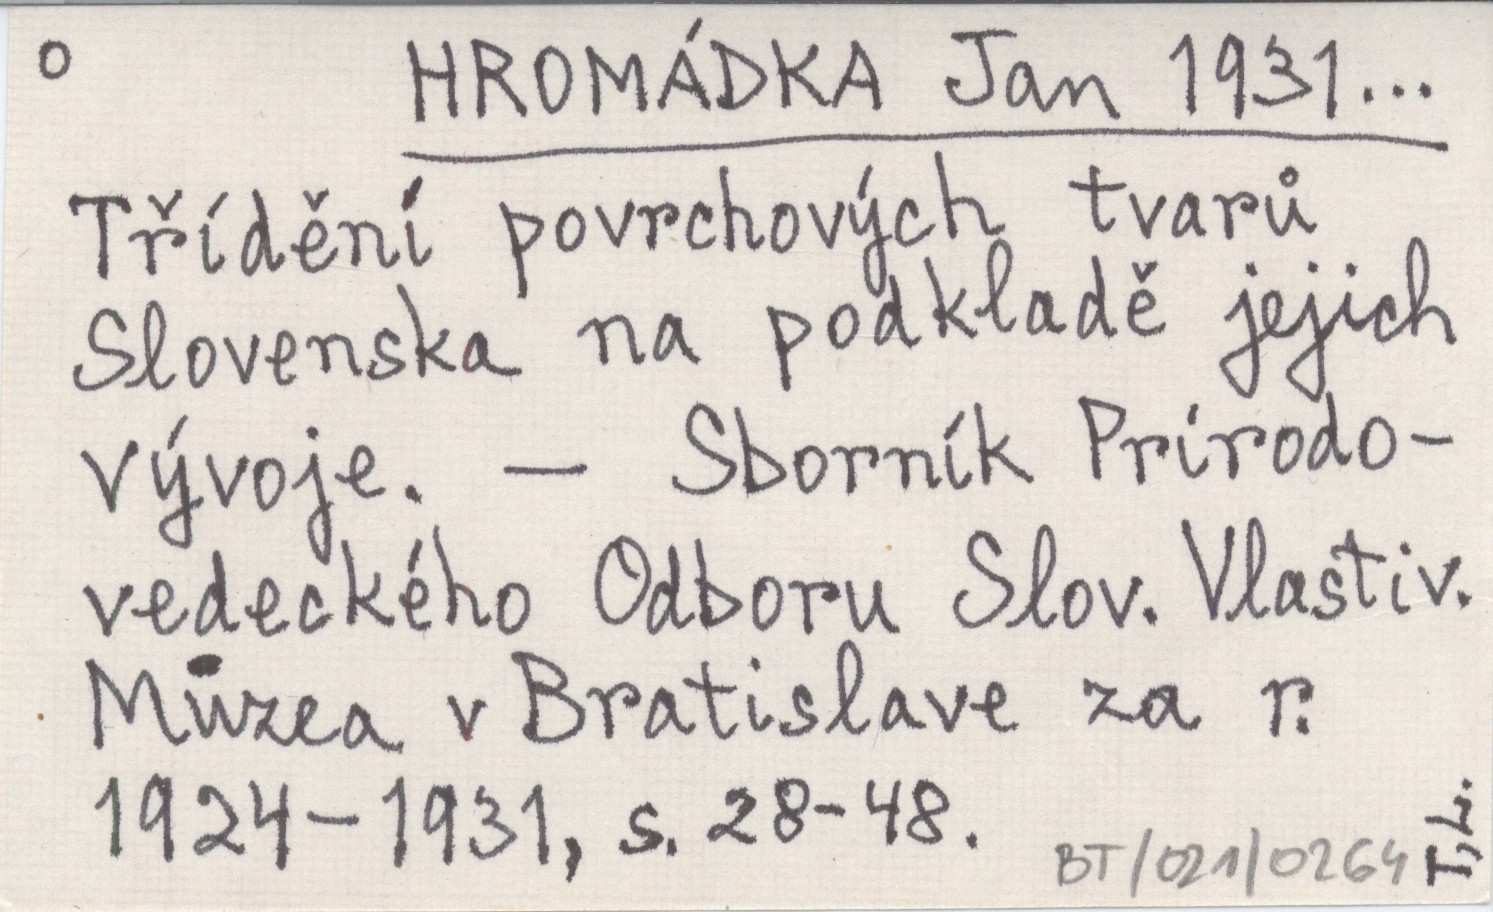 o HROMÁDKA Jan 1931...
Třídění povrchových tvarů
Slovenska na podkladě jejich
vývoje. — Sborník Prírodo-
vedeckého Odboru Slov. Vlastiv.
Múzea v Bratislave za r.
1924-1931, s. 28-48.
BT/021/0264
T, Li.